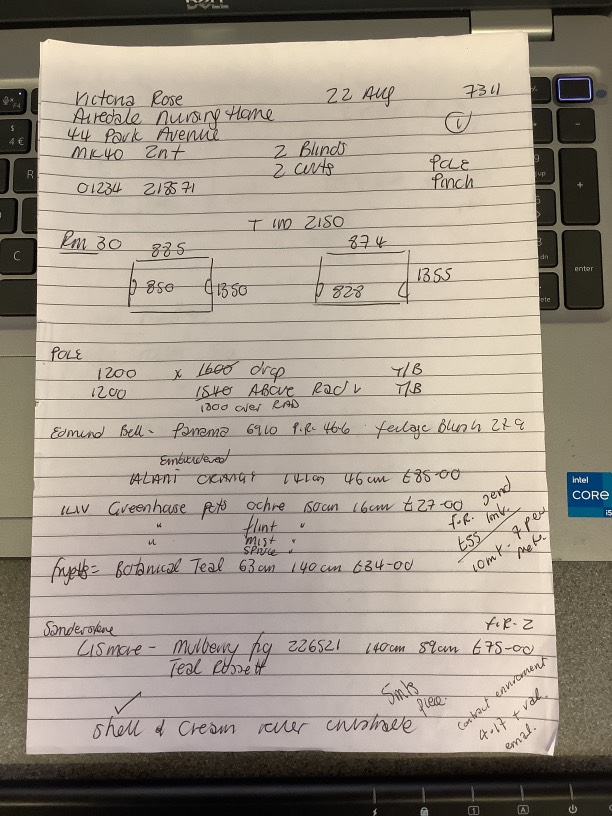 DELL
Victoria Rose 22 Aug 7311
Airedale Nursing Home ①
44 Park Avenue
MK40 2nt 2 Blinds POLE
2 curts Pinch
01234 218571
2150
Rm 30 885 874
850 1350 828 1355
POLE
1200 x 1600 drop T/B
1200 1540 Above Rad T/B
1300 over RAD
Edmund Bell - Panama 6910 P.R. 466 Blush 229
Embroidered
ALANI 141cm 46cm £85-00
ILIV Greenhouse pets ochre 150cm 16cm £27-00
" flint "
" mist "
spruce "
f.R. send
£55 1mk.
10mk - 7 per metre.
fryetts = Botanical Teal 63cm 140cm £34-00
Sanderstone f.R. 2
Lismore - Mulberry fig 226521 140cm 89cm £75-00
Teal Russett
5mts
piece.
contact enviroment
4.17 + vat.
email.
✓
Shell & Cream
intel
CORE
i5
enter